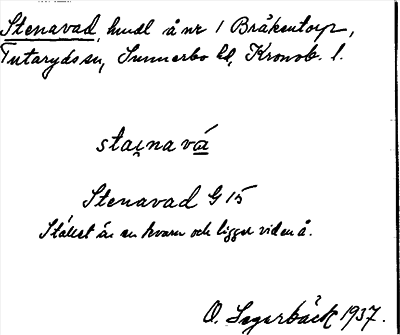 Stenavad, hmdl å nr 1 Bråkentorp,
Tutaryds sn, Sunnerbo hd, Kronob. l.
staɩ̯na vá
Stenavad G 15
Stället är en kvarn och ligger vid en å.
O. Segerbäck 1937.